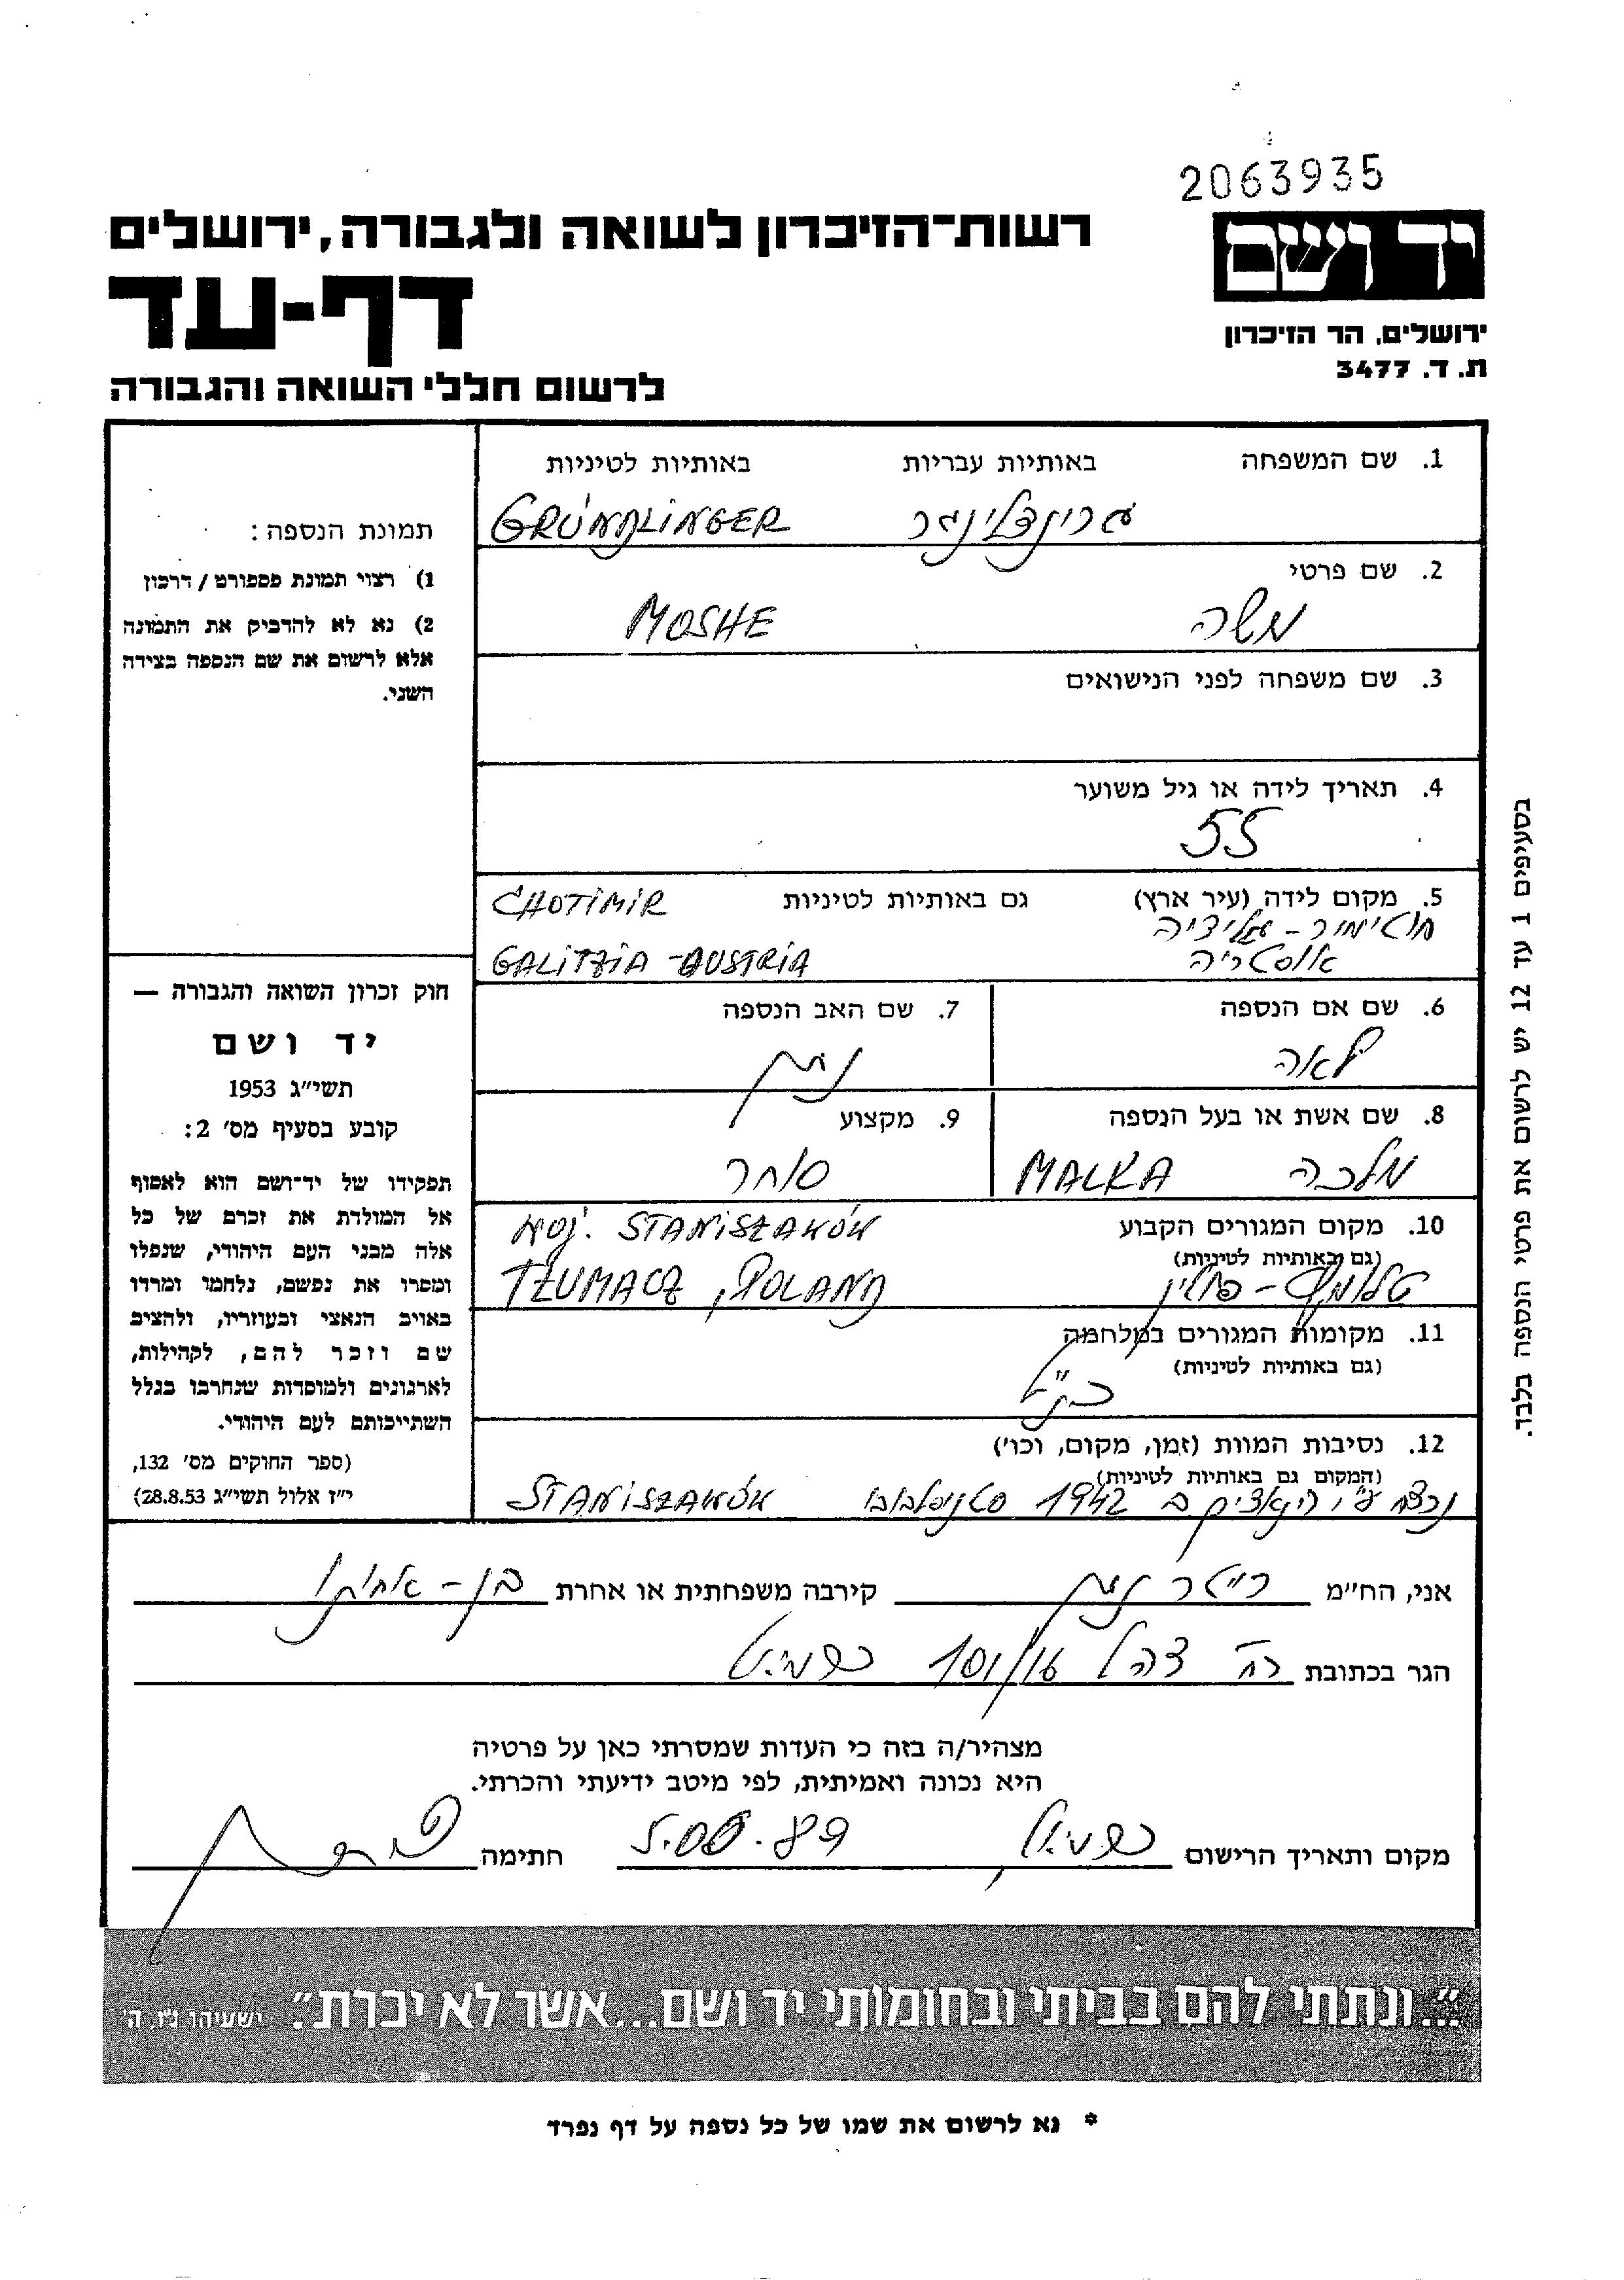 2063935
יד ושם
ירושלים, הר הזיכרון
ת. ד. 3477
רשות־הזיכרון לשואה ולגבורה, ירושלים
דף-עד
לרשום חללי השואה והגבורה
1. שם המשפחה באותיות עבריות באותיות לטיניות
גרינדלינגר GRÜNDLINGER
2. שם פרטי
משה MOSHE
3. שם משפחה לפני הנישואים
4. תאריך לידה או גיל משוער
55
5. מקום לידה (עיר ארץ) גם באותיות לטיניות CHOTIMIR
חוטימיר - גליציה
אוסטריה GALITZIA - AUSTRIA
6. שם אם הנספה 7. שם האב הנספה
לאה נתן
8. שם אשת או בעל הנספה 9. מקצוע
מלכה MALKA סוחר
10. מקום המגורים הקבוע WOJ. STANISŁAWÓW
(גם באותיות לטיניות)
טלומץ - פולין TŁUMACZ, POLAND
11. מקומות המגורים במלחמה
(גם באותיות לטיניות)
כנ"ל
12. נסיבות המוות (זמן, מקום, וכו')
(המקום גם באותיות לטיניות)
נרצח ע"י הנאצים ב 1942 סטניסלבוב STANISŁAWÓW
תמונת הנספה:
1) רצוי תמונת פספורט / דרכון
2) נא לא להדביק את התמונה
אלא לרשום את שם הנספה בצידה
השני.
חוק זכרון השואה והגבורה —
יד ושם
תשי"ג 1953
קובע בסעיף מס' 2:
תפקידו של יד־ושם הוא לאסוף
אל המולדת את זכרם של כל
אלה מבני העם היהודי, שנפלו
ומסרו את נפשם, נלחמו ומרדו
באויב הנאצי ובעוזריו, ולהציב
שם וזכר להם, לקהילות,
לארגונים ולמוסדות שנחרבו בגלל
השתייכותם לעם היהודי.
(ספר החוקים מס' 132,
י"ז אלול תשי"ג 28.8.53)
בסעיפים 1 עד 12 יש לרשום את פרטי הנספה בלבד.
אני, הח"מ נתן קירבה משפחתית או אחרת בן - אחותו
הגר בכתובת רח' צהל כרמיאל
מצהיר/ה בזה כי העדות שמסרתי כאן על פרטיה
היא נכונה ואמיתית, לפי מיטב ידיעתי והכרתי.
מקום ותאריך הרישום כרמיאל חתימה
"...ונתתי להם בביתי ובחומותי יד ושם...אשר לא יכרת". ישעיהו נ"ו, ה'
* נא לרשום את שמו של כל נספה על דף נפרד